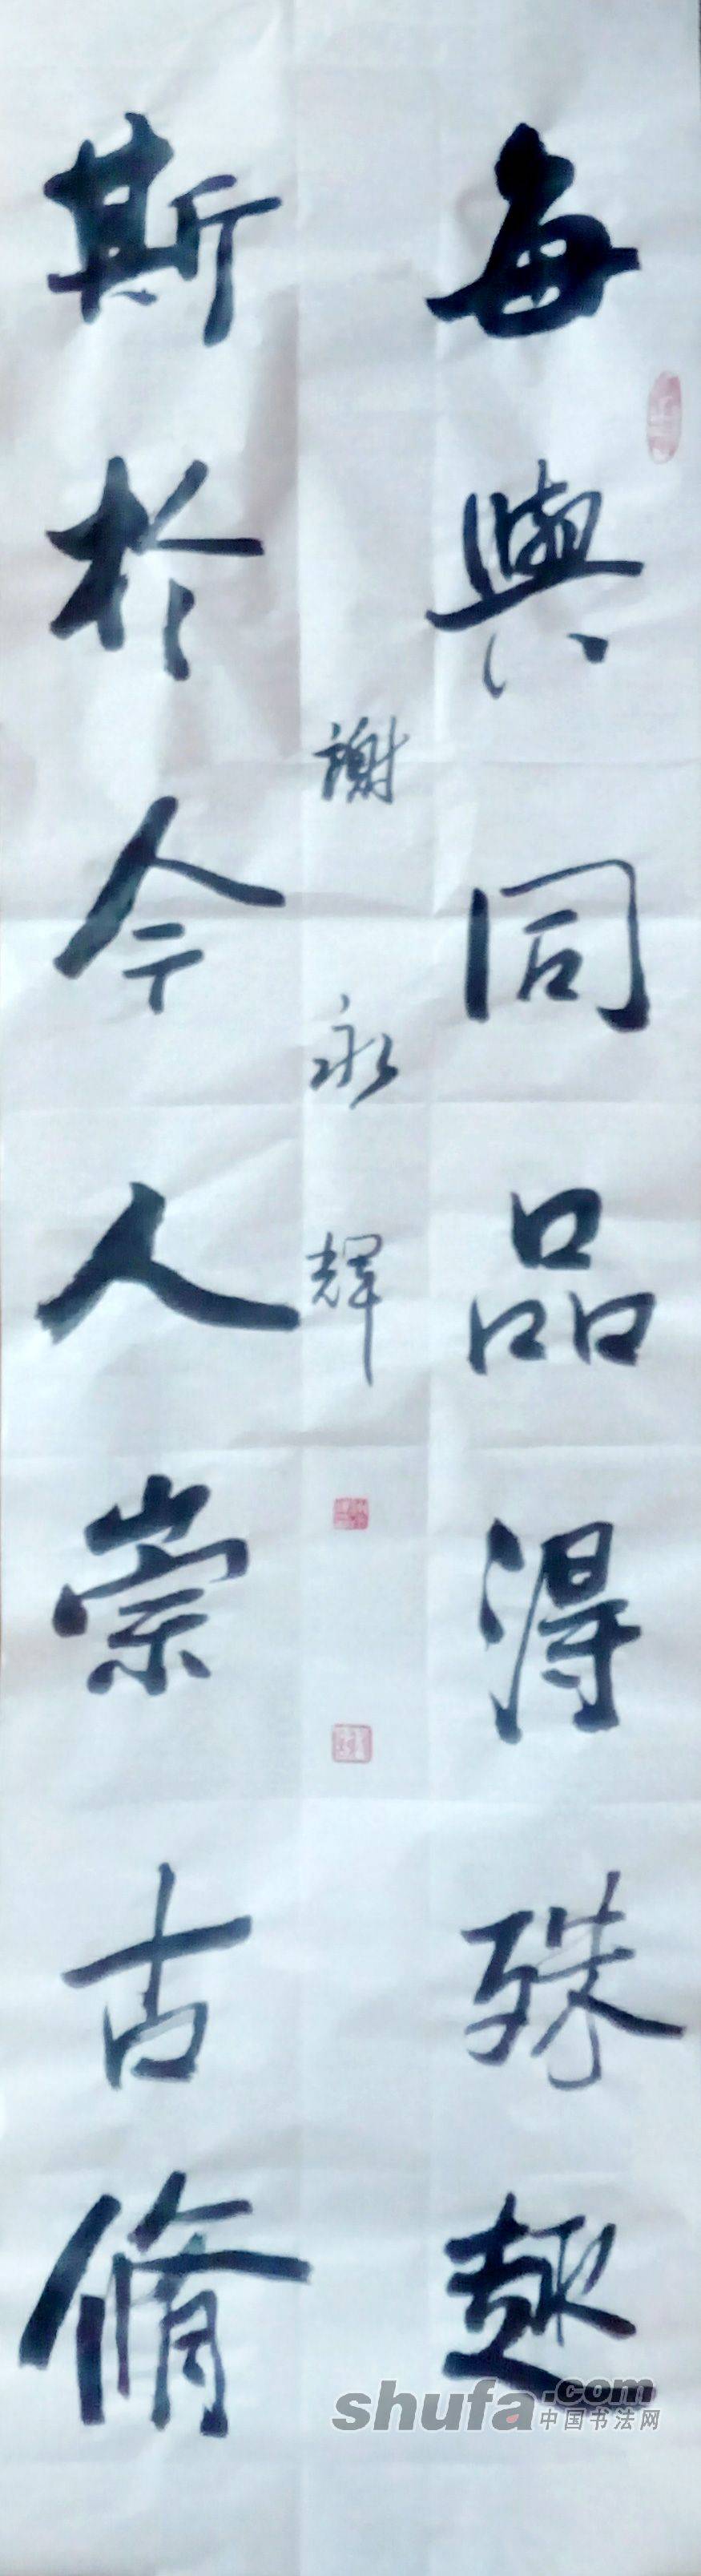 每與同品得殊趣
斯於今人崇古脩
謝永輝
shufa.com
中国书法网